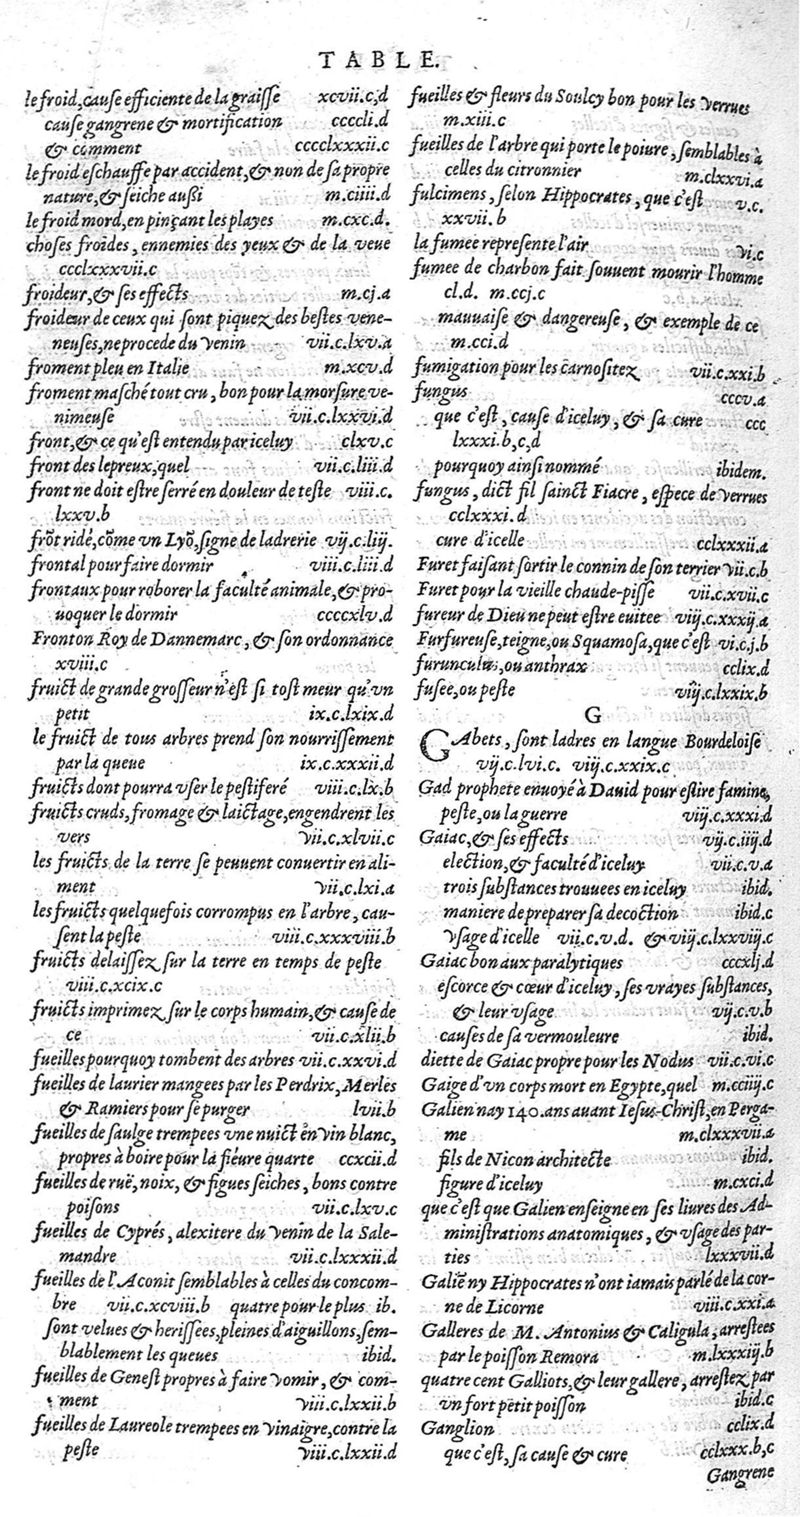 TABLE.
le froid, cause efficiente de la graisse xcvii.c,d
cause gangrene & mortification ccccli.d
& comment cccclxxxii.c
le froid eschauffe par accident, & non de sa propre
nature, & seiche aussi m.ciiii.d
le froid mord, en pinçant les playes m.cxc.d.
choses froides, ennemies des yeux & de la veue
ccclxxxvii.c
froideur, & ses effects m.cj.a
froideur de ceux qui sont piquez des bestes vene-
neuses, ne procede du venin vii.c.lxv.a
froment pleu en Italie m.xcv.d
froment masché tout cru, bon pour la morsure ve-
nimeuse vii.c.lxxvi.d
front, & ce qu'est entendu par iceluy clxv.c
front des lepreux, quel vii.c.liii.d
front ne doit estre serré en douleur de teste viii.c.
lxxv.b
frõt ridé, cõme vn Lyõ, signe de ladrerie vij.c.liij.
frontal pour faire dormir viii.c.liii.d
frontaux pour roborer la faculté animale, & pro-
uoquer le dormir ccccxlv.d
Fronton Roy de Dannemarc, & son ordonnance
xviii.c
fruict de grande grosseur n'est si tost meur qu'vn
petit ix.c.lxix.d
le fruict de tous arbres prend son nourrissement
par la queue ix.c.xxxii.d
fruicts dont pourra vser le pestiferé viii.c.lx.b
fruicts cruds, fromage & laictage, engendrent les
vers vii.c.xlvii.c
les fruicts de la terre se peuuent conuertir en ali-
ment vii.c.lxi.a
les fruicts quelquefois corrompus en l'arbre, cau-
sent la peste viii.c.xxxviii.b
fruicts delaissez sur la terre en temps de peste
viii.c.xcix.c
fruicts imprimez sur le corps humain, & cause de
ce vii.c.xlii.b
fueilles pourquoy tombent des arbres vii.c.xxvi.d
fueilles de laurier mangees par les Perdrix, Merles
& Ramiers pour se purger lvii.b
fueilles de saulge trempees vne nuict en vin blanc,
propres à boire pour la fiéure quarte ccxcii.d
fueilles de ruë, noix, & figues seiches, bons contre
poisons vii.c.lxv.c
fueilles de Cyprés, alexitere du venin de la Sale-
mandre vii.c.lxxxii.d
fueilles de l'Aconit semblables à celles du concom-
bre vii.c.xcviii.b quatre pour le plus ib.
sont velues & herissées, pleines d'aiguillons, sem-
blablement les queues ibid.
fueilles de Genest propres à faire vomir, & com-
ment viii.c.lxxii.b
fueilles de Laureole trempees en vinaigre, contre la
peste viii.c.lxxii.d
fueilles & fleurs du Soulcy bon pour les verrues
m.xiii.c
fueilles de l'arbre qui porte le poiure, semblables à
celles du citronnier m.clxxvi.a
fulcimens, selon Hippocrates, que c'est v.c.
xxvii.b
la fumee represente l'air vi.c
fumee de charbon fait souuent mourir l'homme
cl.d. m.ccj.c
mauuaise & dangereuse, & exemple de ce
m.cci.d
fumigation pour les carnositez vii.c.xxi.b
fungus cccv.a
que c'est, cause d'iceluy, & sa cure ccc
lxxxi.b,c,d
pourquoy ainsi nommé ibidem.
fungus, dict fil sainct Fiacre, espece de verrues
cclxxxi.d
cure d'icelle cclxxxii.a
Furet faisant sortir le connin de son terrier vii.c.b
Furet pour la vieille chaude-pisse vii.c.xvii.c
fureur de Dieu ne peut estre euitee viij.c.xxxij.a
Furfureuse, teigne, ou Squamosa, que c'est vi.c.j.b
furunculus, ou anthrax cclix.d
fusee, ou peste viij.c.lxxix.b
G
GAbets, sont ladres en langue Bourdeloise
vij.c.lvi.c. viij.c.xxix.c
Gad prophete enuoyé à Dauid pour eslire famine,
peste, ou la guerre viij.c.xxxi.d
Gaiac, & ses effects vij.c.iiij.d
election, & faculté d'iceluy vii.c.v.a
trois substances trouuees en iceluy ibid.
maniere de preparer sa decoction ibid.c
vsage d'icelle vii.c.v.d. & viij.c.lxxviij.c
Gaiac bon aux paralytiques cccxlj.d
escorce & cœur d'iceluy, ses vrayes substances,
& leur vsage vij.c.v.b
causes de sa vermouleure ibid.
diette de Gaiac propre pour les Nodus vii.c.vi.c
Gaige d'vn corps mort en Egypte, quel m.cciiij.c
Galien nay 140. ans auant Iesus-Christ, en Perga-
me m.clxxxvii.a
fils de Nicon architecte ibid.
figure d'iceluy m.cxci.d
que c'est que Galien enseigne en ses liures des Ad-
ministrations anatomiques, & vsage des par-
ties lxxxvii.d
Galiẽ ny Hippocrates n'ont iamais parlé de la cor-
ne de Licorne viii.c.xxi.a
Galleres de M. Antonius & Caligula, arrestees
par le poisson Remora m.lxxxiij.b
quatre cent Galliots, & leur gallere, arrestez par
vn fort petit poisson ibid.c
Ganglion cclix.d
que c'est, sa cause & cure cclxxx.b,c
Gangrene